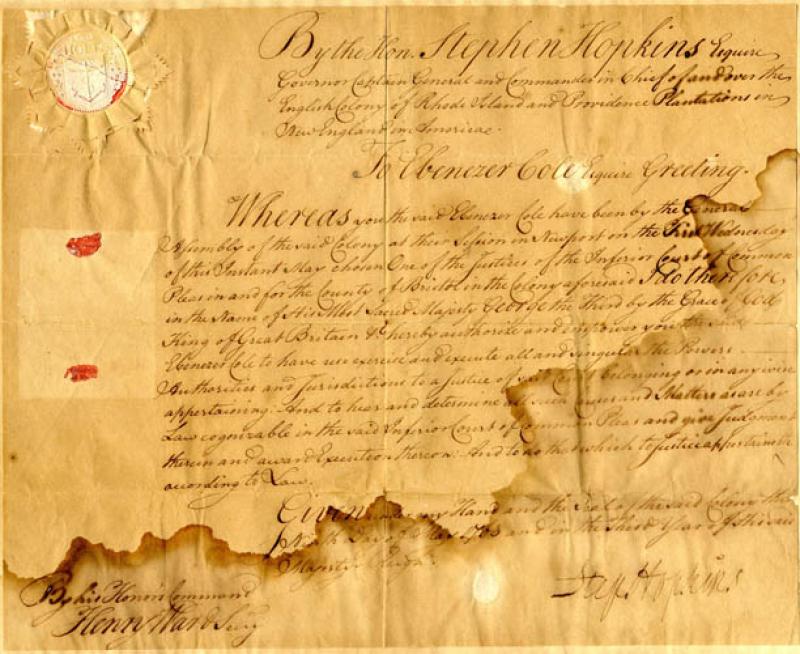 By the Hon. Stephen Hopkins Esquire
Governor Captain General and Commander in Chief of and over the
English Colony of Rhode Island and Providence Plantations in
New England in America.
To Ebenezer Cole Esquire Greeting.
Whereas you the said Ebenezer Cole have been by the General
Assembly of the said Colony at their Session in Newport on the First Wednesday
of this Instant May chosen One of the Justices of the Inferior Court of Common
Pleas in and for the County of Bristol in the Colony aforesaid I do therefore,
in the Name of His Most Sacred Majesty George the Third by the Grace of God
King of Great Britain &c hereby authorize and impower you the said
Ebenezer Cole to have use exercise and execute all and singular the Powers
Authorities and Jurisdictions to a Justice of said Court belonging or in any wise
appertaining. And to hear and determine all such and Matters as are by
Law cognizable in the said Inferior Court of Common Pleas and give Judgment
therein and award Execution thereon. And to do that which to Justice appertaineth
according to Law.
Given under my Hand and the Seal of the said Colony this
Ninth Day of May 1763 and in the third Year of His said
Majesty's Reign.
Step Hopkins
By his Honor's Command
Henry Ward Secry